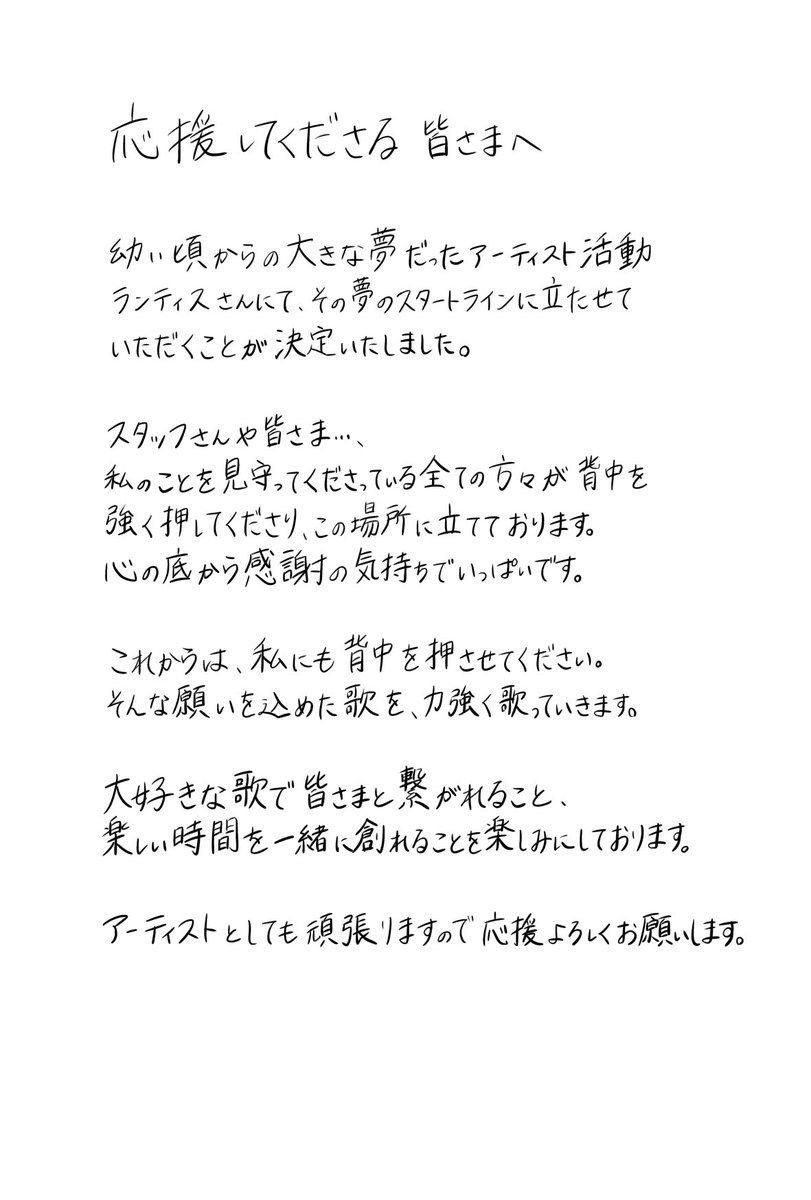 応援してくださる 皆さまへ
幼い頃からの大きな夢だったアーティスト活動
ランティスさんにて、その夢のスタートラインに立たせて
いただくことが決定いたしました。
スタッフさんや皆さま…、
私のことを見守ってくださっている全ての方々が背中を
強く押してくださり、この場所に立てております。
心の底から感謝の気持ちでいっぱいです。
これからは、私にも背中を押させてください。
そんな願いを込めた歌を、力強く歌っていきます。
大好きな歌で皆さまと繋がれること、
楽しい時間を一緒に創れることを楽しみにしております。
アーティストとしても頑張りますので応援よろしくお願いします。